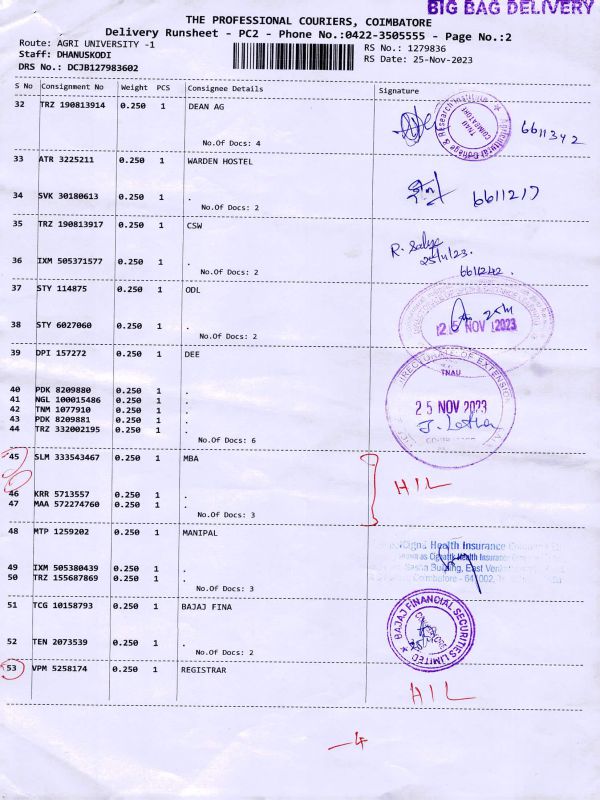 BIG BAG DELIVERY
THE PROFESSIONAL COURIERS, COIMBATORE
Delivery Runsheet - PC2 - Phone No.:0422-3505555 - Page No.:2
Route: AGRI UNIVERSITY -1
RS No.: 1279836
Staff: DHANUSKODI
RS Date: 25-Nov-2023
DRS No.: DCJB127983602
S No Consignment No Weight PCS Consignee Details Signature
32 TRZ 190813914 0.250 1 DEAN AG
6611342
No.Of Docs: 4
33 ATR 3225211 0.250 1 WARDEN HOSTEL
34 SVK 30180613 0.250 1 . 6611217
No.Of Docs: 2
35 TRZ 190813917 0.250 1 CSW
36 IXM 505371577 0.250 1 .
No.Of Docs: 2
37 STY 114875 0.250 1 ODL
25 NOV 2023
38 STY 6027060 0.250 1 .
No.Of Docs: 2
39 DPI 157272 0.250 1 DEE
DIRECTORATE OF EXTENSION
TNAU
40 PDK 8209880 0.250 1 .
41 NGL 100015486 0.250 1 .
25 NOV 2023
42 TNM 1077910 0.250 1 .
43 PDK 8209881 0.250 1 .
44 TRZ 332002195 0.250 1 .
No.Of Docs: 6
45 SLM 333543467 0.250 1 MBA
HIL
46 KRR 5713557 0.250 1 .
47 MAA 572274760 0.250 1 .
No.Of Docs: 3
48 MTP 1259202 0.250 1 MANIPAL
Health Insurance
49 IXM 505380439 0.250 1 .
50 TRZ 155687869 0.250 1 .
No.Of Docs: 3
51 TCG 10158793 0.250 1 BAJAJ FINA
BAJAJ FINANCIAL SECURITIES LIMITED
52 TEN 2073539 0.250 1 .
No.Of Docs: 2
53 VPM 5258174 0.250 1 REGISTRAR
HIL